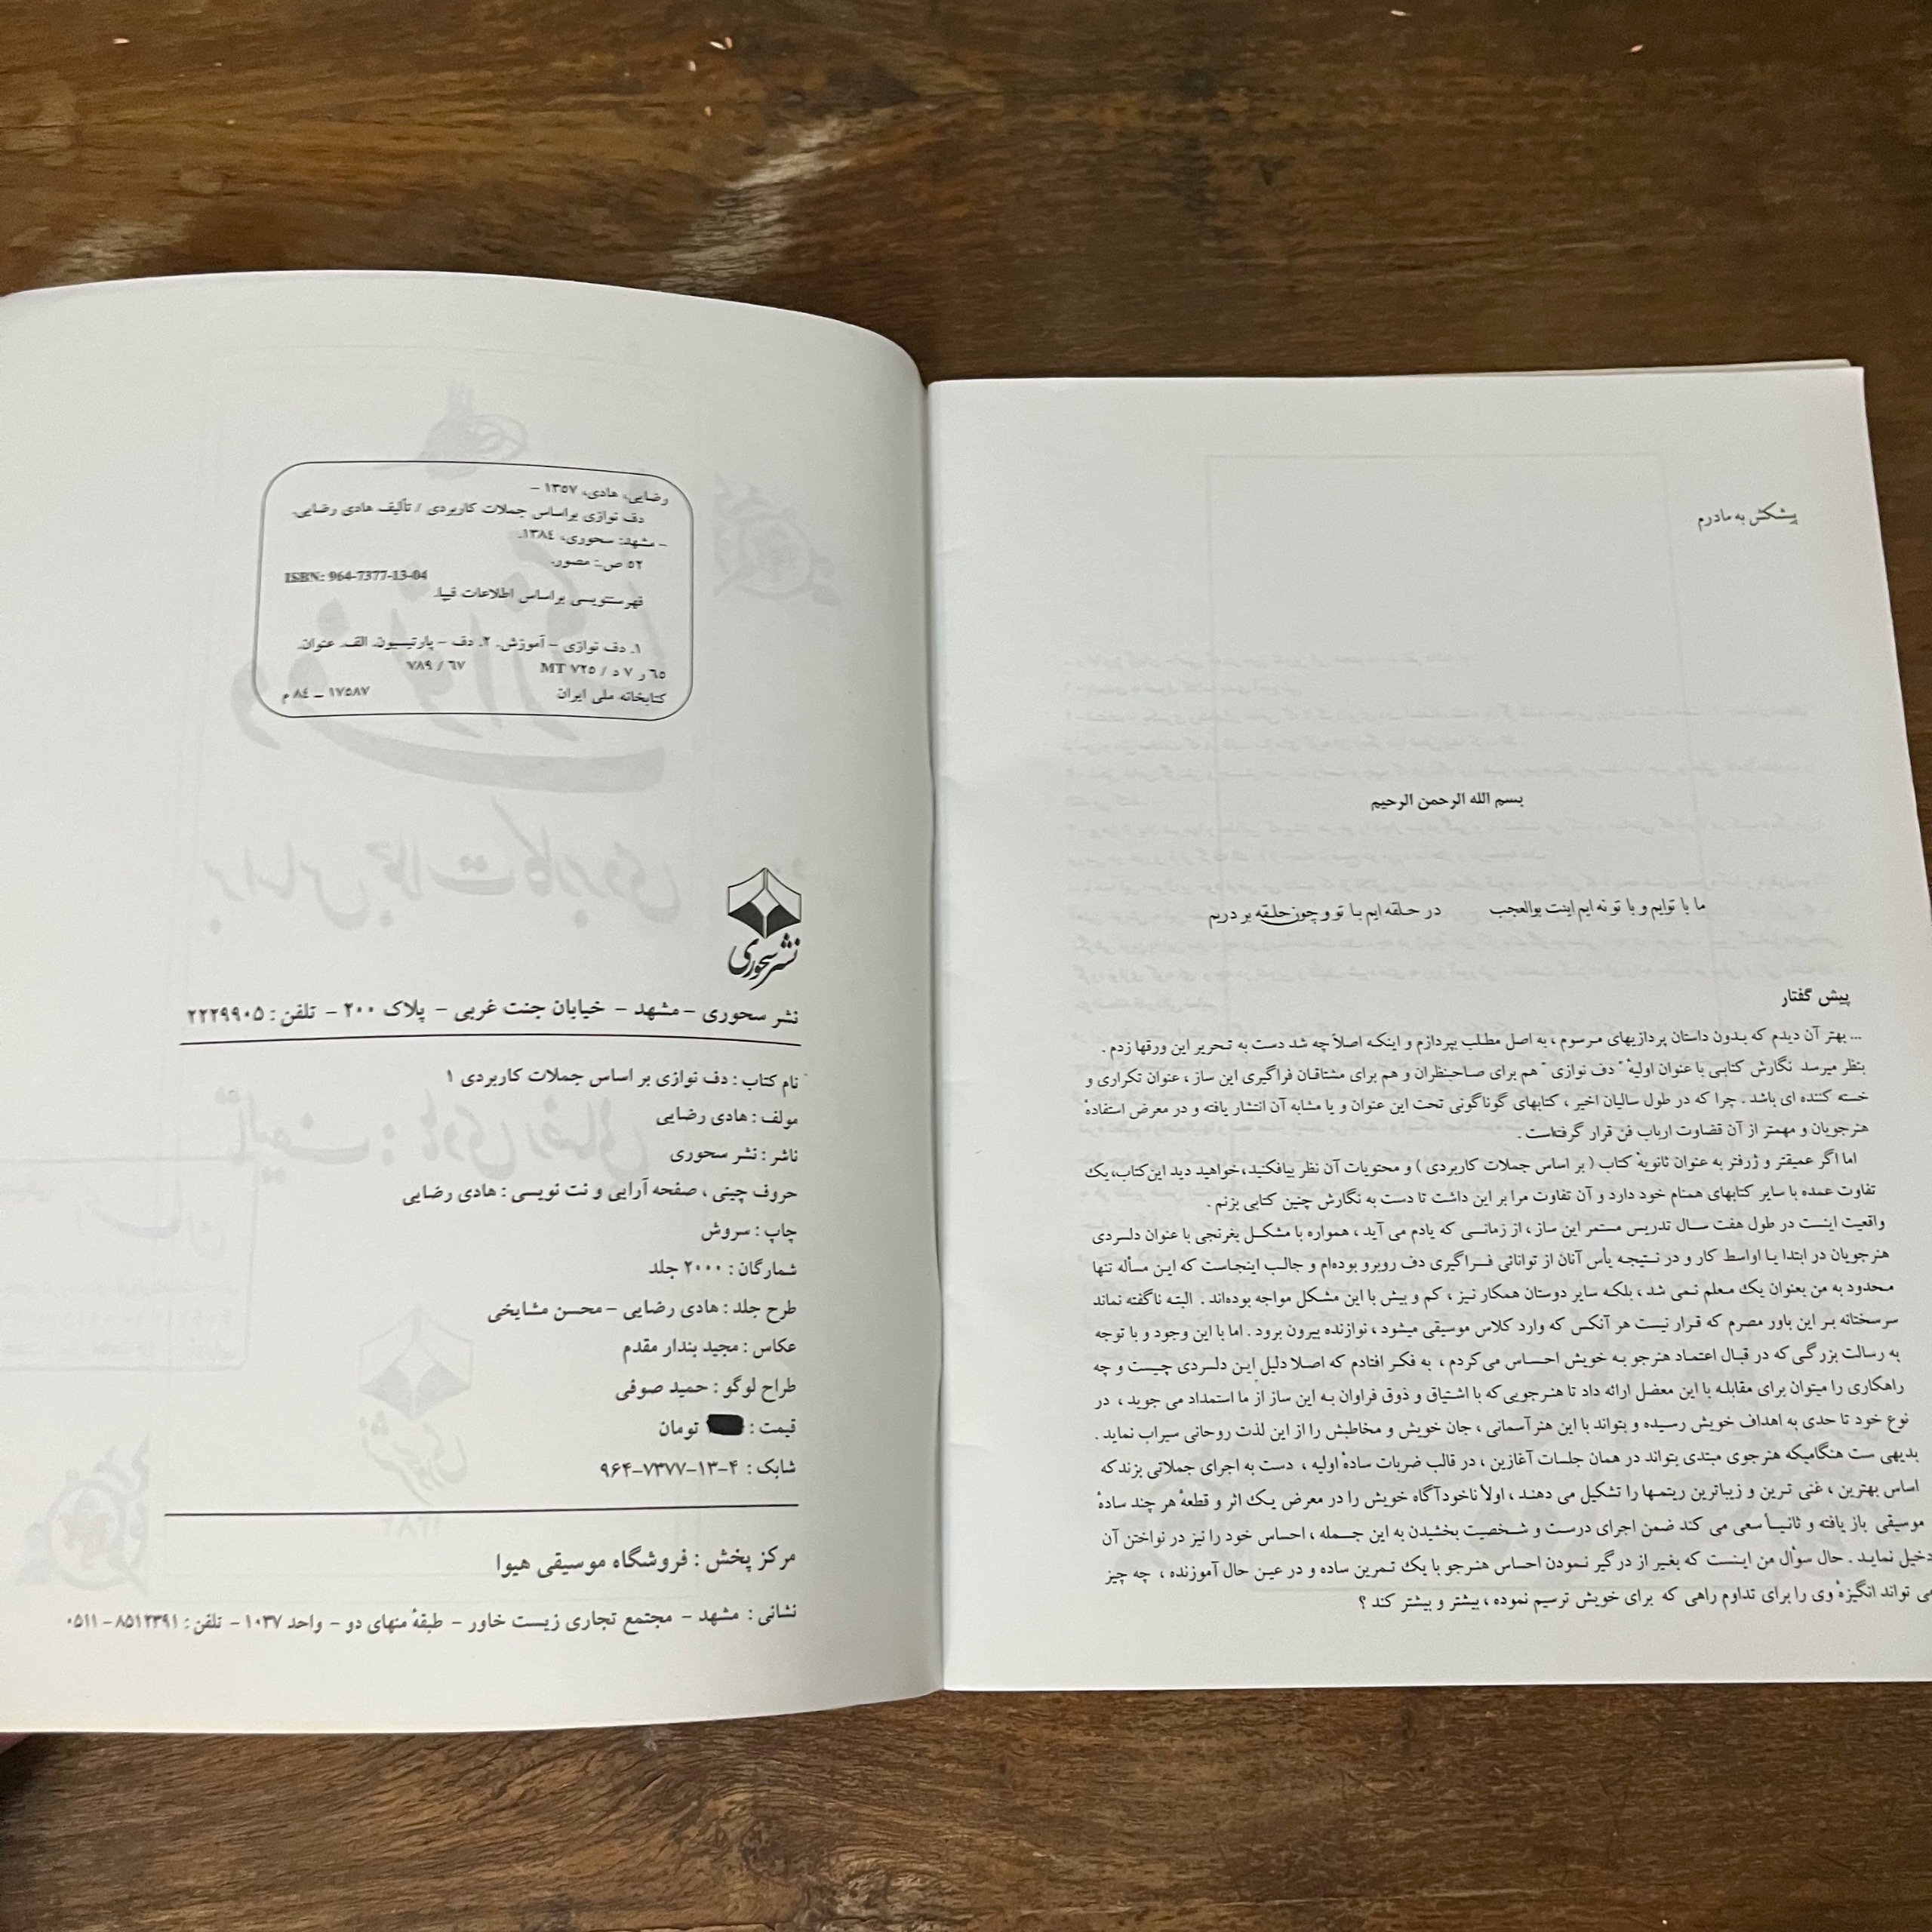 رضایی، هادی، ۱۳۵۷ –
دف نوازی براساس جملات کاربردی / تألیف هادی رضایی.
– مشهد: سحوری، ۱۳۸٤.
۵۲ ص.: مصور.
ISBN: 964-7377-13-04
فهرستنویسی براساس اطلاعات فیپا.
۱. دف نوازی – آموزش. ۲. دف – پارتیسیون. الف. عنوان.
۷۸۹ / ۶۷ MT ۷۲۵ / ۶۵ ر ۷ د
کتابخانه ملی ایران ۱۷۵۸۷ – ۸٤ م
نشر سحوری
نشر سحوری – مشهد – خیابان جنت غربی – پلاک ۲۰۰ – تلفن : ۲۲۲۹۹۰۵
نام کتاب : دف نوازی بر اساس جملات کاربردی ۱
مولف : هادی رضایی
ناشر : نشر سحوری
حروف چینی ، صفحه آرایی و نت نویسی : هادی رضایی
چاپ : سروش
شمارگان : ۲۰۰۰ جلد
طرح جلد : هادی رضایی – محسن مشایخی
عکاس : مجید بندار مقدم
طراح لوگو : حمید صوفی
قیمت : تومان
شابک : ۴–۱۳–۷۳۷۷–۹۶۴
مرکز پخش : فروشگاه موسیقی هیوا
نشانی : مشهد – مجتمع تجاری زیست خاور – طبقهٔ منهای دو – واحد ۱۰۳۷ – تلفن : ۸۵۱۲۳۹۱ – ۰۵۱۱
پیشکش به مادرم
بسم الله الرحمن الرحیم
ما با توایم و با تو نه ایم اینت بوالعجب در حلقه ایم با تو و چون حلقه بر دریم
پیش گفتار
... بهتر آن دیدم که بدون داستان پردازیهای مرسوم ، به اصل مطلب بپردازم و اینکه اصلاً چه شد دست به تحریر این ورقها زدم .
بنظر میرسد نگارش کتابی با عنوان اولیهٔ " دف نوازی " هم برای صاحبنظران و هم برای مشتاقان فراگیری این ساز ، عنوان تکراری و
خسته کننده ای باشد . چرا که در طول سالیان اخیر ، کتابهای گوناگونی تحت این عنوان و یا مشابه آن انتشار یافته و در معرض استفادهٔ
هنرجویان و مهمتر از آن قضاوت ارباب فن قرار گرفته‌است .
اما اگر عمیقتر و ژرفتر به عنوان ثانویهٔ کتاب ( بر اساس جملات کاربردی ) و محتویات آن نظر بیافکنید، خواهید دید این کتاب، یک
تفاوت عمده با سایر کتابهای همنام خود دارد و آن تفاوت مرا بر این داشت تا دست به نگارش چنین کتابی بزنم .
واقعیت اینست در طول هفت سال تدریس مستمر این ساز ، از زمانی که یادم می آید ، همواره با مشکل بغرنجی با عنوان دلسردی
هنرجویان در ابتدا یا اواسط کار و در نتیجه یأس آنان از توانائی فراگیری دف روبرو بوده‌ام و جالب اینجاست که این مسأله تنها
محدود به من بعنوان یک معلم نمی شد ، بلکه سایر دوستان همکار نیز ، کم و بیش با این مشکل مواجه بوده‌اند . البته ناگفته نماند
سرسختانه بر این باور مصرم که قرار نیست هر آنکس که وارد کلاس موسیقی میشود ، نوازنده بیرون برود . اما با این وجود و با توجه
به رسالت بزرگی که در قبال اعتماد هنرجو به خویش احساس می‌کردم ، به فکر افتادم که اصلا دلیل این دلسردی چیست و چه
راهکاری را میتوان برای مقابله با این معضل ارائه داد تا هنرجویی که با اشتیاق و ذوق فراوان به این ساز از ما استمداد می جوید ، در
نوع خود تا حدی به اهداف خویش رسیده و بتواند با این هنر آسمانی ، جان خویش و مخاطبش را از این لذت روحانی سیراب نماید .
بدیهی ست هنگامیکه هنرجوی مبتدی بتواند در همان جلسات آغازین ، در قالب ضربات سادهٔ اولیه ، دست به اجرای جملاتی بزند که
اساس بهترین ، غنی ترین و زیباترین ریتمها را تشکیل می دهند ، اولاً ناخودآگاه خویش را در معرض یک اثر و قطعهٔ هر چند سادهٔ
موسیقی باز یافته و ثانیاً سعی می کند ضمن اجرای درست و شخصیت بخشیدن به این جمله ، احساس خود را نیز در نواختن آن
دخیل نماید . حال سؤال من اینست که بغیر از درگیر نمودن احساس هنرجو با یک تمرین ساده و در عین حال آموزنده ، چه چیز
می تواند انگیزهٔ وی را برای تداوم راهی که برای خویش ترسیم نموده ، بیشتر و بیشتر کند ؟